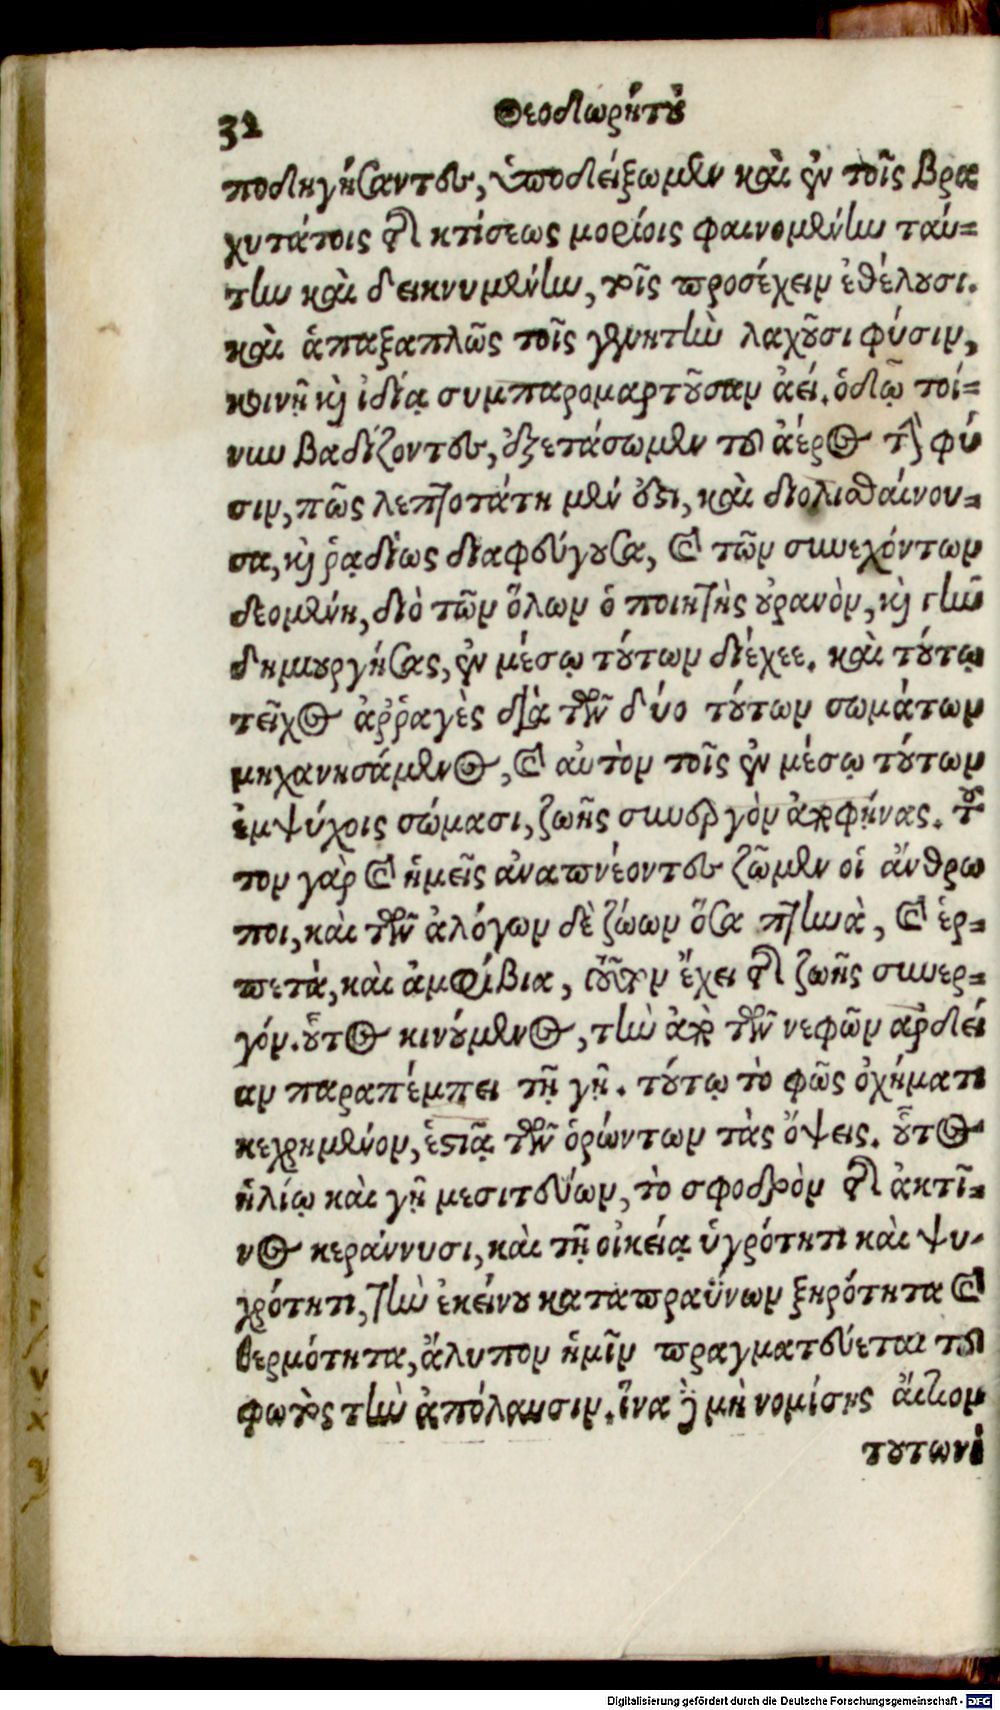 32
Θεοδωρήτου
ποδηγήσαντες, ὑποδείξωμεν καὶ ἐν τοῖς βρα
χυτάτοις τῆς κτίσεως μορίοις φαινομένην ταύ=
την καὶ δεικνυμένην, τοῖς προσέχειν ἐθέλουσι.
καὶ ἁπαξαπλῶς τοῖς γεννητὴν λαχοῦσι φύσιν,
κοινῇ κὶ ἰδίᾳ συμπαρομαρτοῦσαν ἀεί. ὁδῷ τοί=
νυν βαδίζοντες, ἐξετάσωμεν τοῦ ἀέρος τὴν φύ
σιν, πῶς λεπτοτάτη μέν ἐστι, καὶ διολισθαίνου=
σα, καὶ ῥᾳδίως διαφεύγουσα, καὶ τῶν συνεχόντων
δεομένη, διὸ τῶν ὅλων ὁ ποιητὴς οὐρανὸν, καὶ γῆν
δημιουργήσας, ἐν μέσῳ τούτων διέχεε. καὶ τούτῳ
τεῖχος ἀῤῥαγὲς διὰ τῶν δύο τούτων σωμάτων
μηχανησάμενος, καὶ αὐτὸν τοῖς ἐν μέσῳ τούτων
ἐμψύχοις σώμασι, ζωῆς συνεργὸν ἀπεφήνας. τοῦ
τον γὰρ καὶ ἡμεῖς ἀναπνέοντες ζῶμεν οἱ ἄνθρω
ποι, καὶ τῶν ἀλόγων δὲ ζώων ὅσα πτηνὰ, καὶ ἑρ=
πετὰ, καὶ ἀμφίβια, τοῦτον ἔχει τῆς ζωῆς συνερ=
γόν. οὗτος κινούμενος, τὴν ἀπὸ τῶν νεφῶν ἀρδεί
αν παραπέμπει τῇ γῇ. τούτῳ τὸ φῶς ὀχήματι
κεχρημένον, ἑστιᾷ τῶν ὁρώντων τὰς ὄψεις. οὗτος
ἡλίῳ καὶ γῇ μεσιτεύων, τὸ σφοδρὸν τῆς ἀκτῖ=
νος κεράννυσι, καὶ τῇ οἰκείᾳ ὑγρότητι καὶ ψυ-
χρότητι, τὴν ἐκείνου καταπραΰνων ξηρότητα καὶ
θερμότητα, ἄλυπον ἡμῖν πραγματεύεται τοῦ
φωτὸς τὴν ἀπόλαυσιν. ἵνα δὲ μὴ νομίσῃς ἄκτιον
τουτωνὶ
Digitalisierung gefördert durch die Deutsche Forschungsgemeinschaft - DFG